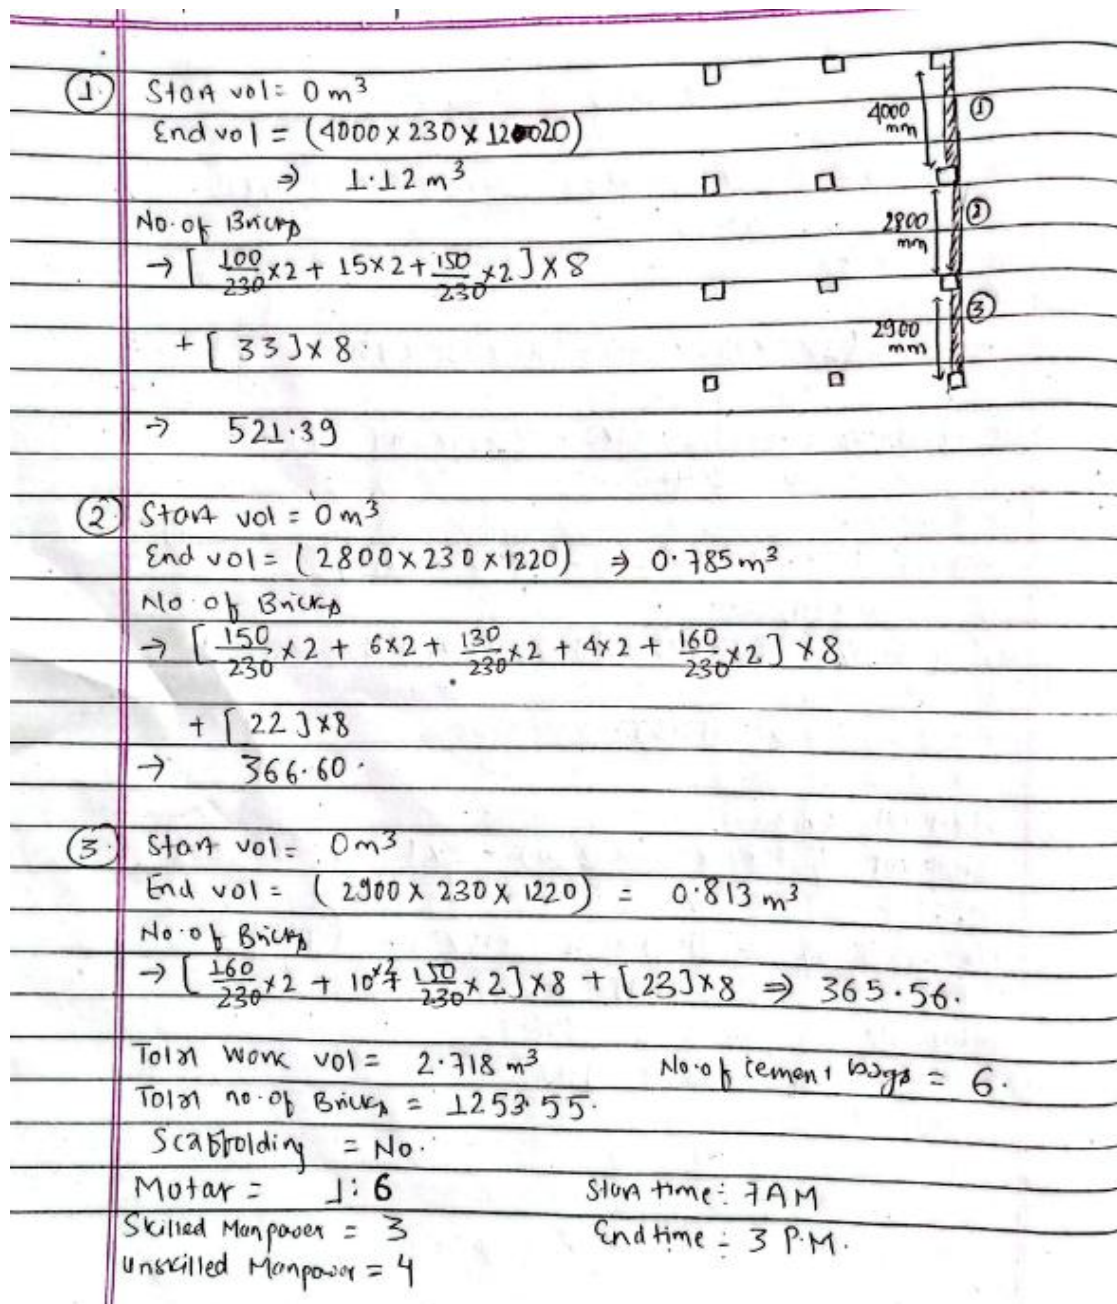 ① Start vol = 0 m³
End vol = (4000 x 230 x 120020)
⇒ 1.12 m³
No. of Bricks
→ [ 100/230 x 2 + 15 x 2 + 150/230 x 2 ] x 8
+ [ 33 ] x 8.
→ 521.39
4000 mm ①
2800 mm ②
2900 mm ③
② Start vol = 0 m³
End vol = (2800 x 230 x 1220) ⇒ 0.785 m³.
No. of Bricks
→ [ 150/230 x 2 + 6x2 + 130/230 x 2 + 4x2 + 160/230 x 2 ] x 8
+ [ 22 ] x 8
→ 366.60.
③ Start vol = 0 m³
End vol = (2900 x 230 x 1220) = 0.813 m³
No. of Bricks
→ [ 160/230 x 2 + 10x2 + 150/230 x 2 ] x 8 + [23] x 8 ⇒ 365.56.
Total Work vol = 2.718 m³ No. of cement bags = 6.
Total no. of Bricks = 1253.55.
Scaffolding = No.
Motar = 1:6 Start time: 7AM
Skilled Manpower = 3 End time = 3 P.M.
Unskilled Manpower = 4